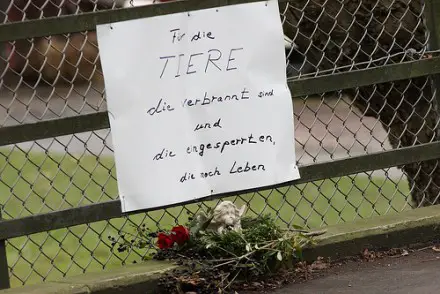 Für die
TIERE
die verbrannt sind
und
die eingesperrten,
die noch Leben